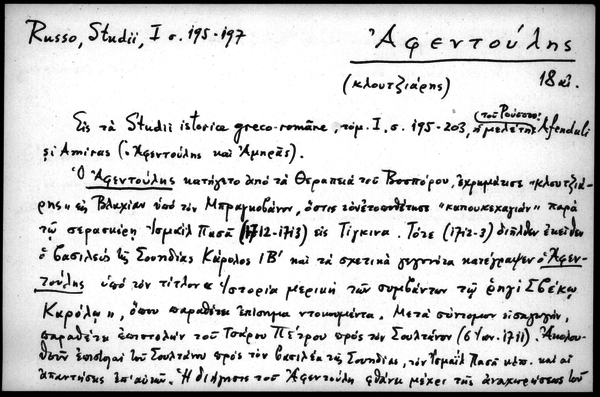 Russo, Studii, I σ. 195-197
Ἀφεντούλης
(κλουτζιάρης) 18 αἰ.
Εἰς τὰ Studii istorice greco-române, τόμ. I, σ. 195-203, (τοῦ Ρούσσο:) ἡ μελέτη Afenduli
şi Amiras (ὁ Ἀφεντούλης καὶ Ἀμηρᾶς).
Ὁ Ἀφεντούλης κατήγετο ἀπὸ τὰ Θεραπειὰ τοῦ Βοσπόρου, ἐχρημάτισε "κλουτζιά-
ρης" εἰς Βλαχίαν ὑπὸ τὸν Μπραγκοβάνον, ὅστις τὸν ἐτοποθέτησε "καπουκεχαγιὰν" παρὰ
τῷ σερασκίρῃ Ἰσμαῒλ Πασᾷ (1712-1713) εἰς Τίγκινα. Τότε (1712-3) διῆλθεν ἐκεῖθεν
ὁ βασιλεὺς τῆς Σουηδίας Κάρολος ΙΒ' καὶ τὰ σχετικὰ γεγονότα κατέγραψεν ὁ Ἀφεν-
τούλης ὑπὸ τὸν τίτλον "Ἱστορία μερικὴ τῶν συμβάντων τῷ ῥηγὶ Σβέκῳ
Καρόλῳ", ὅπου παραθέτει ἐπίσημα ντοκουμέντα. Μετὰ σύντομον εἰσαγωγήν,
παραθέτει ἐπιστολὴν τοῦ Τσάρου Πέτρου πρὸς τὸν Σουλτάνον (6 Ἰαν. 1711). Ἀκολου-
θοῦν ἐπιστολαὶ τοῦ Σουλτάνου πρὸς τὸν βασιλέα τῆς Σουηδίας, τὸν Ἰσμαῒλ Πασᾶ κλπ. καὶ αἱ
ἀπαντήσεις ἐπ' αὐτῶν. Ἡ διήγησις τοῦ Ἀφεντούλη φθάνει μέχρι τῆς ἀναχωρήσεως τοῦ